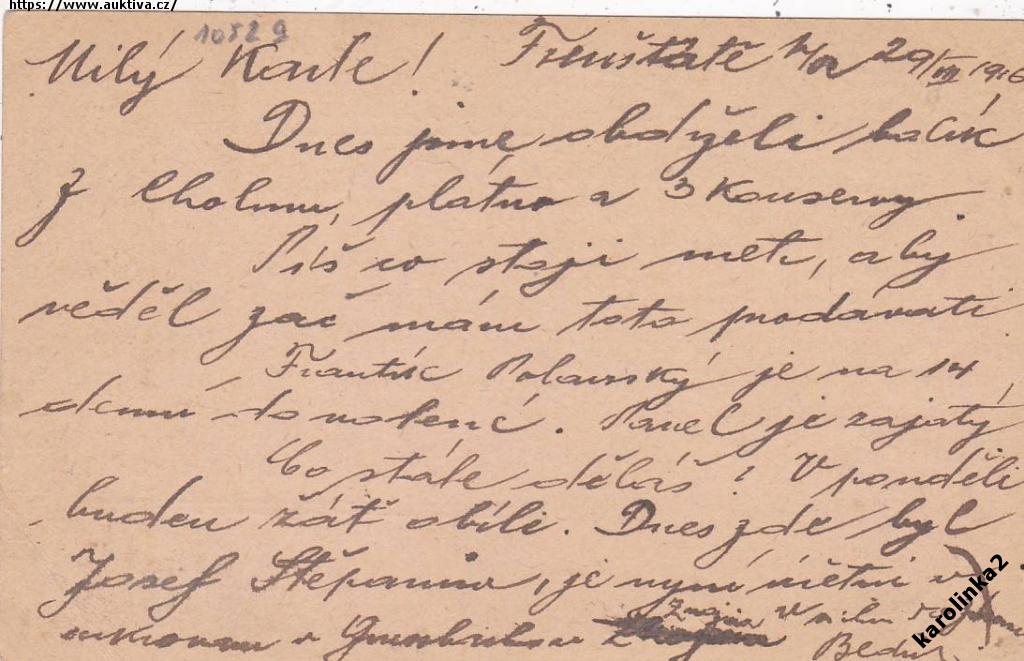 https://www.auktiva.cz/
10529
Milý Karle! Frenštátě 29/VII 1916
Dnes jsme obdrželi balík
z Cholmu, plátno a 3 Konservy.
Piš co stojí metr, aby
věděl zač mám toto prodávati
Frantík Polanský je na 14
denní dovolené. Pavel je zajatý
Co stále děláš? V pondělí
budem žát obilí. Dnes zde byl
Josef Štěpanův, je nyní účetní v
V
karolinka2